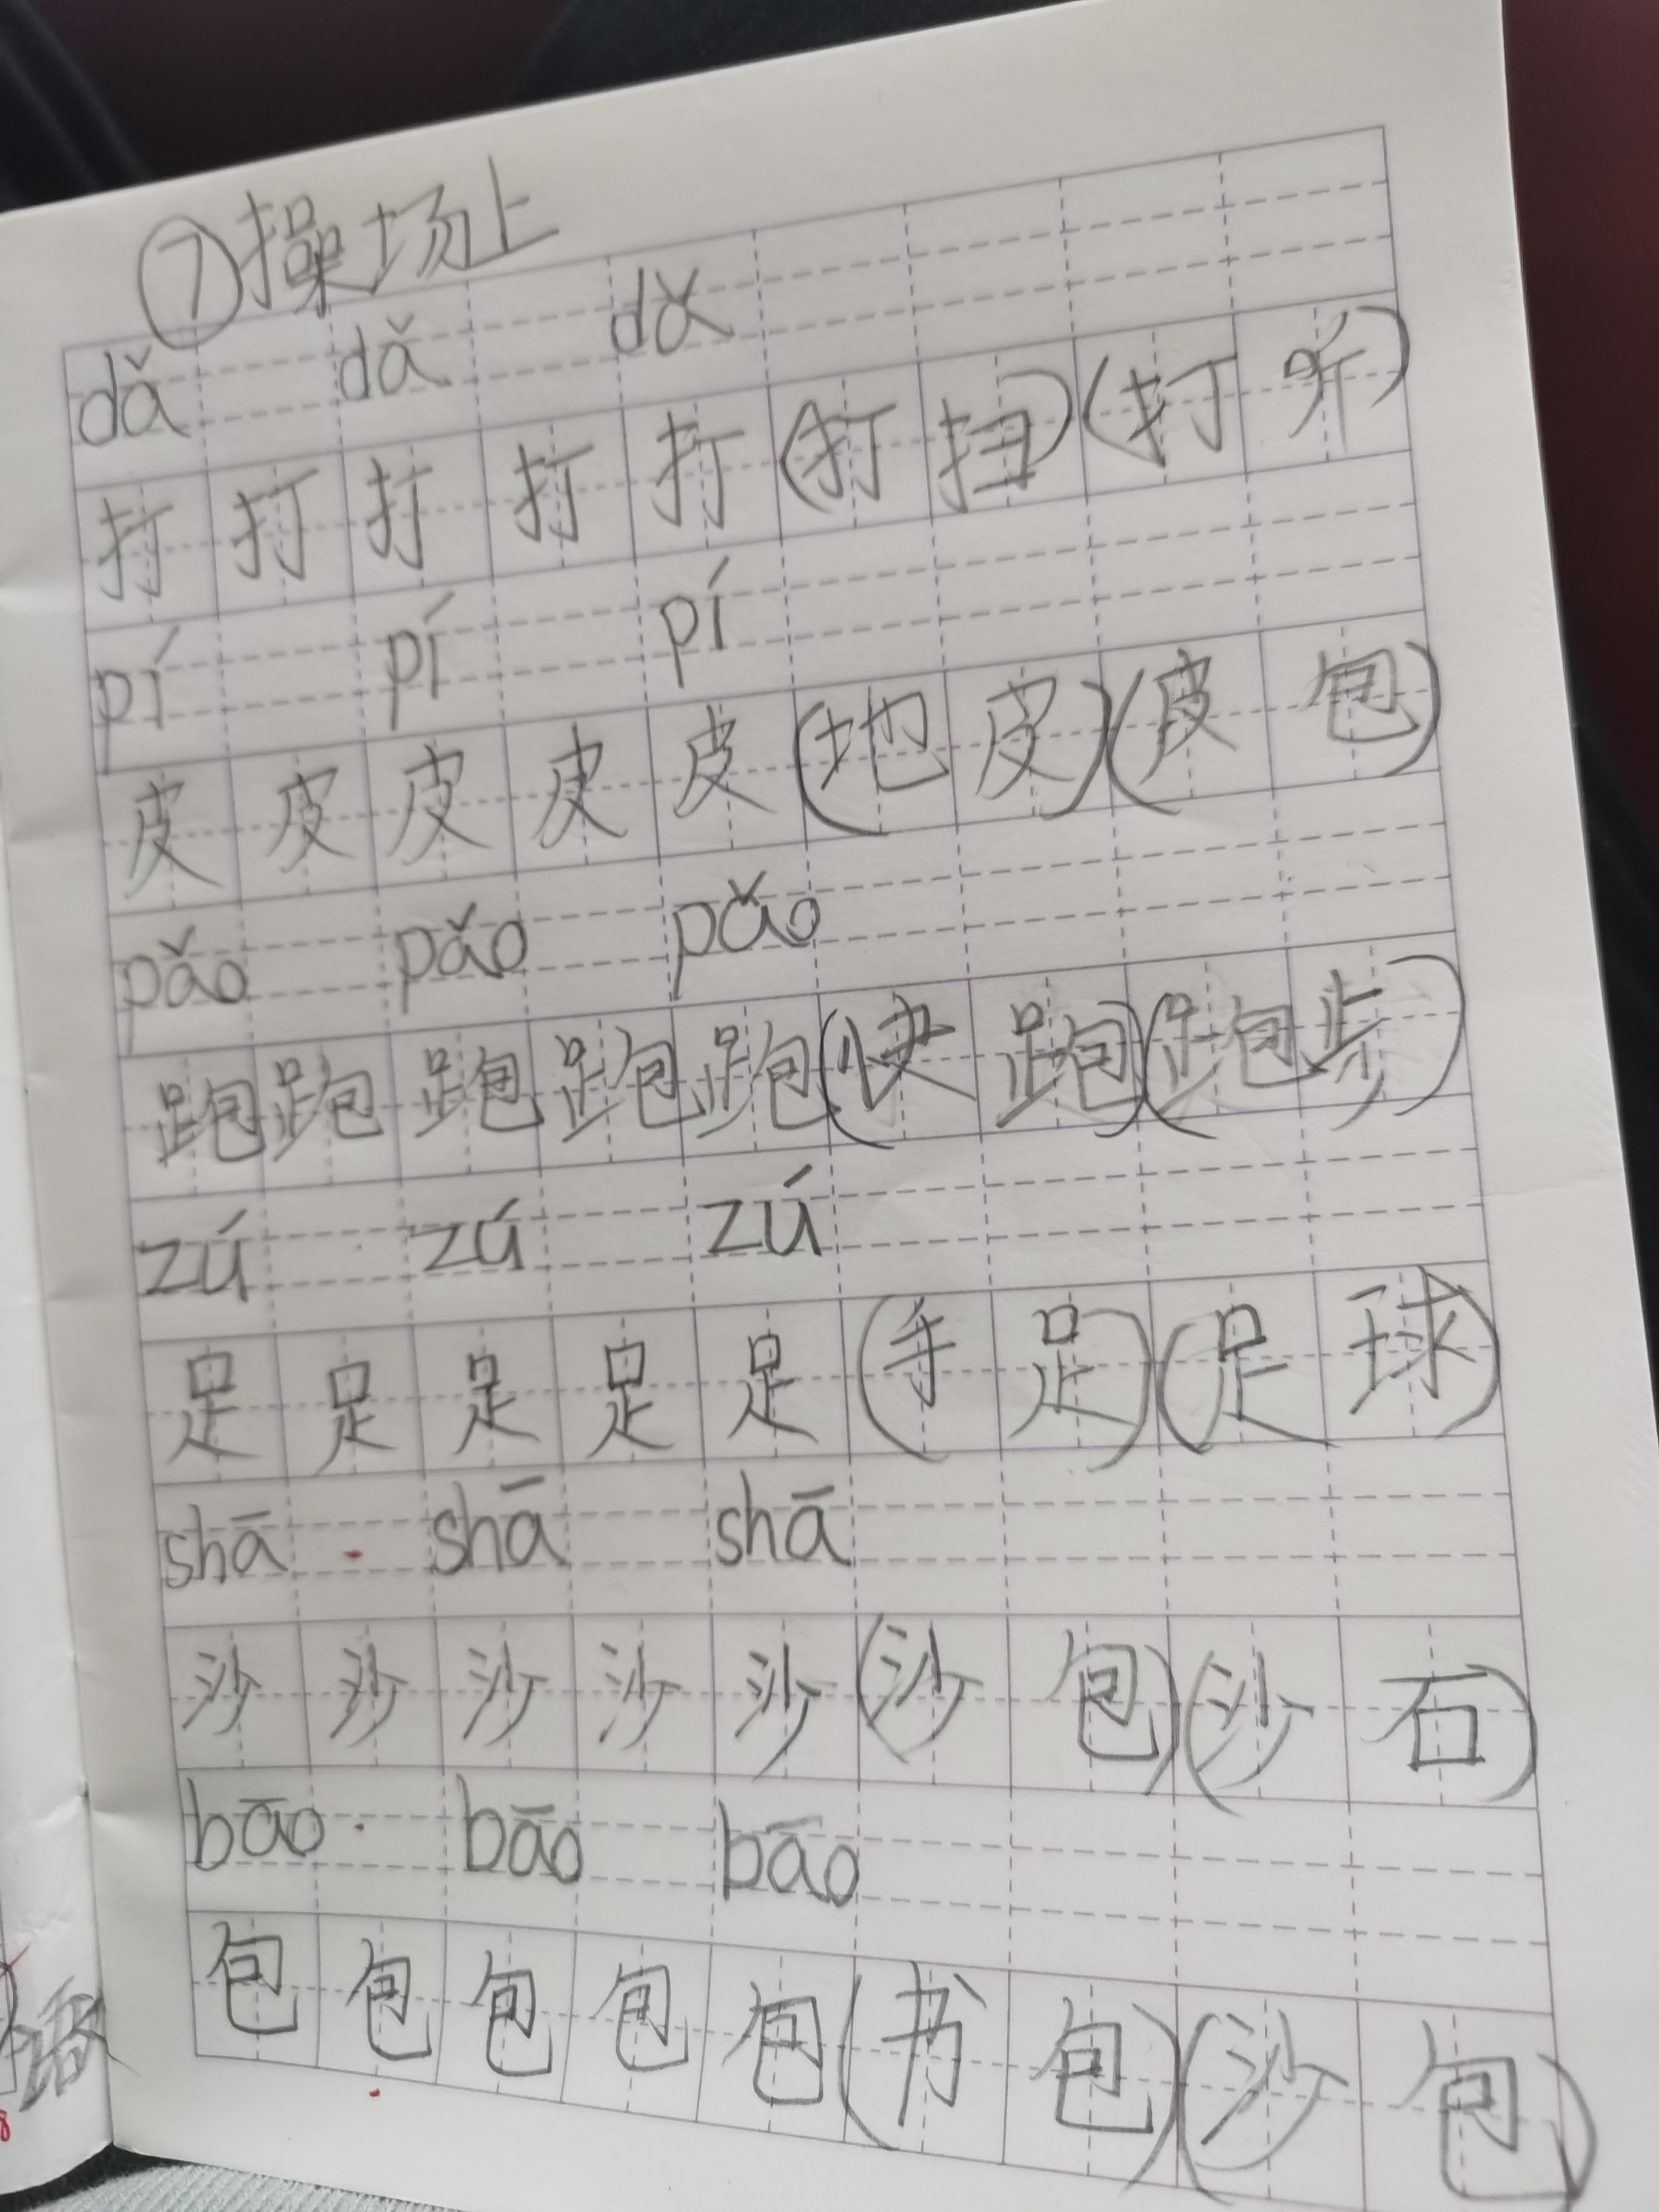 ⑦操场上
dǎ dǎ dǎ
打打打打打(打扫)(打听)
pí pí pí
皮皮皮皮皮(地皮)(皮包)
pǎo pǎo pǎo
跑跑跑跑跑(快跑)(跑步)
zú zú zú
足足足足足(手足)(足球)
shā shā shā
沙沙沙沙沙(沙包)(沙石)
bāo bāo bāo
包包包包包(书包)(沙包)